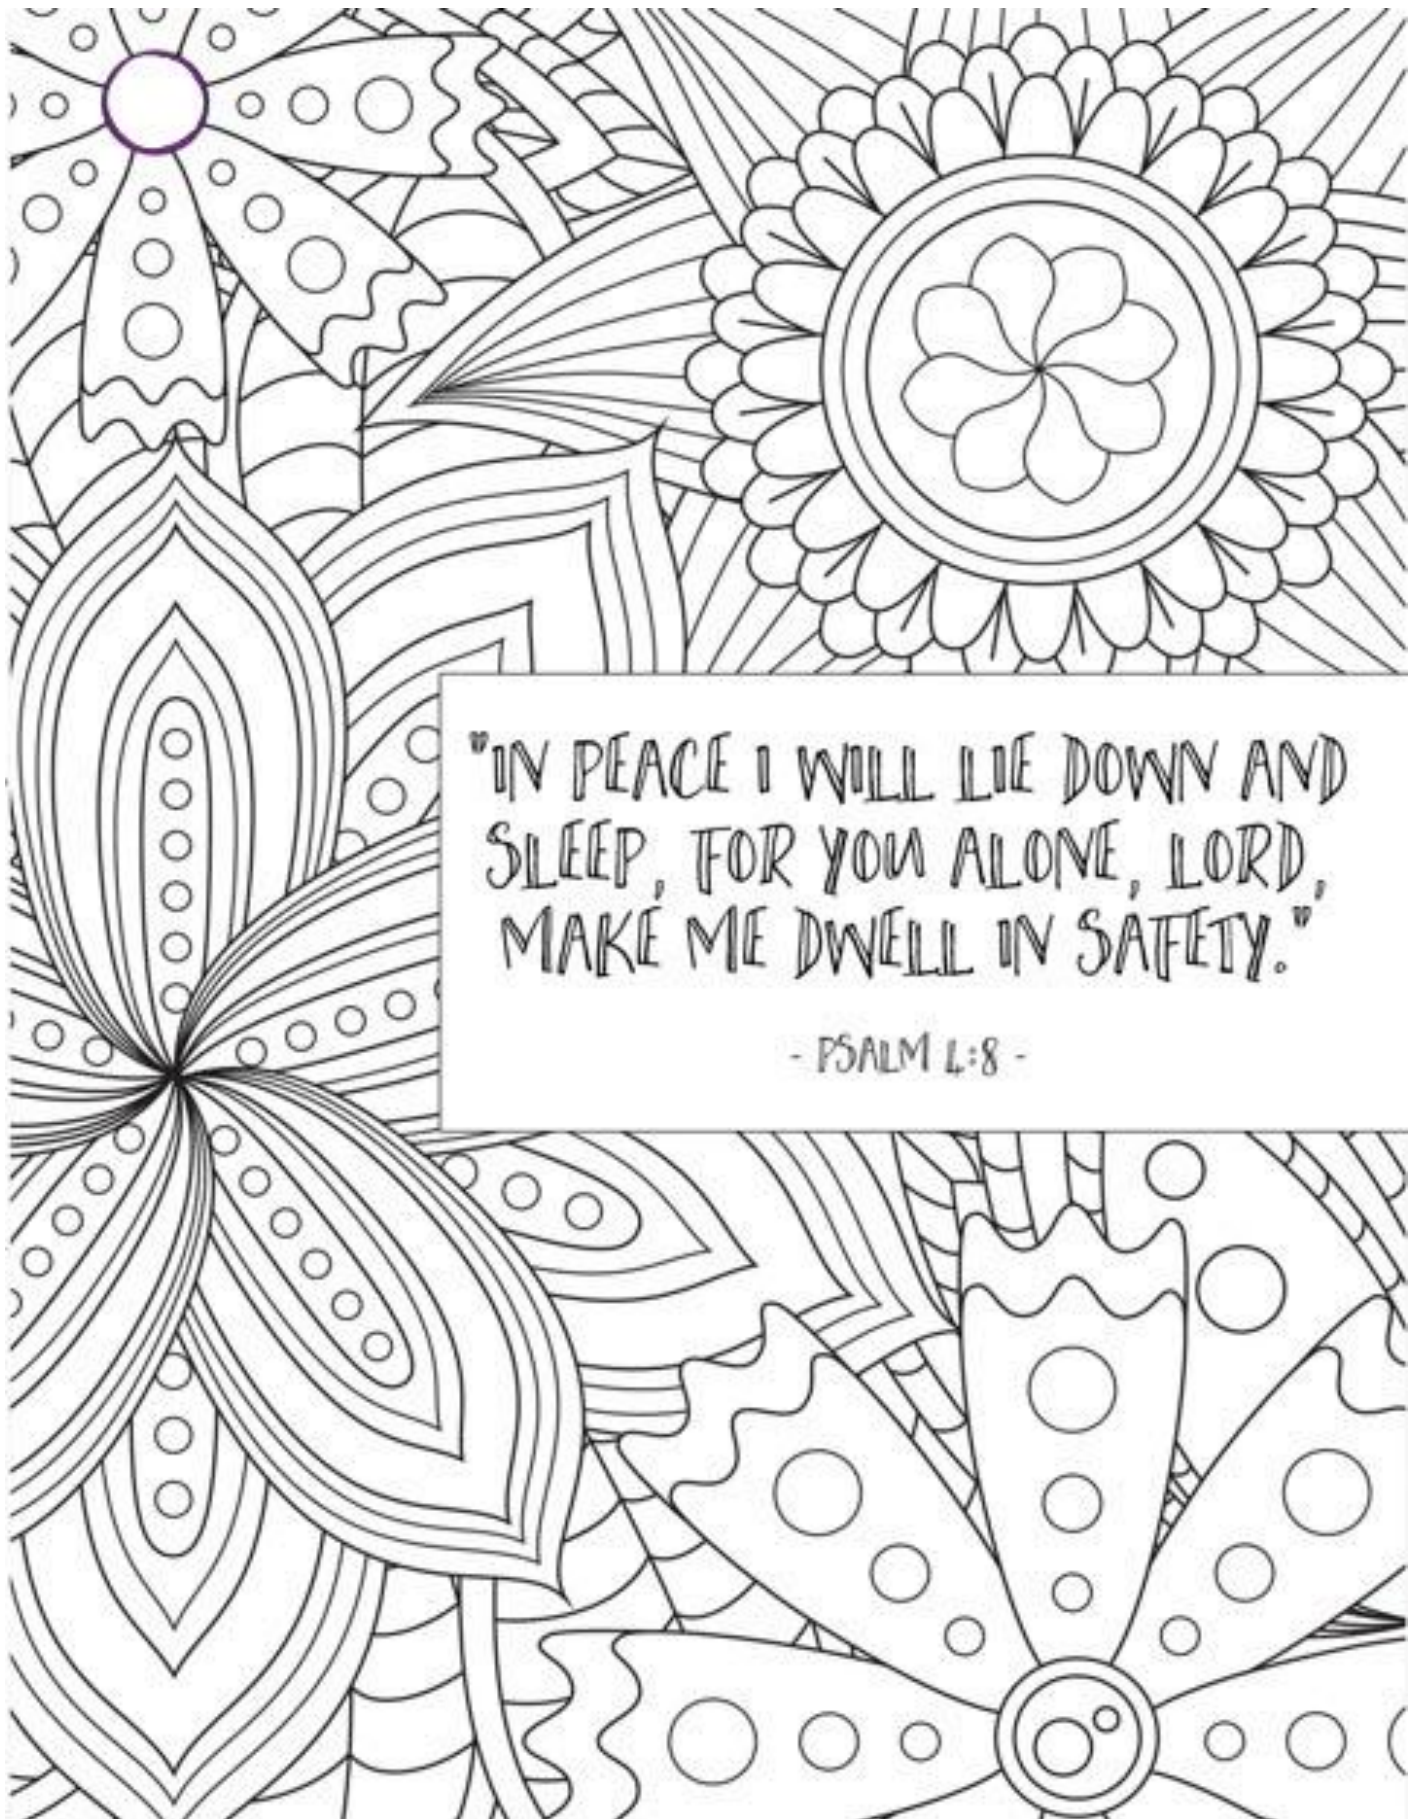 "IN PEACE I WILL LIE DOWN AND
SLEEP, FOR YOU ALONE, LORD,
MAKE ME DWELL IN SAFETY."
- PSALM 4:8 -